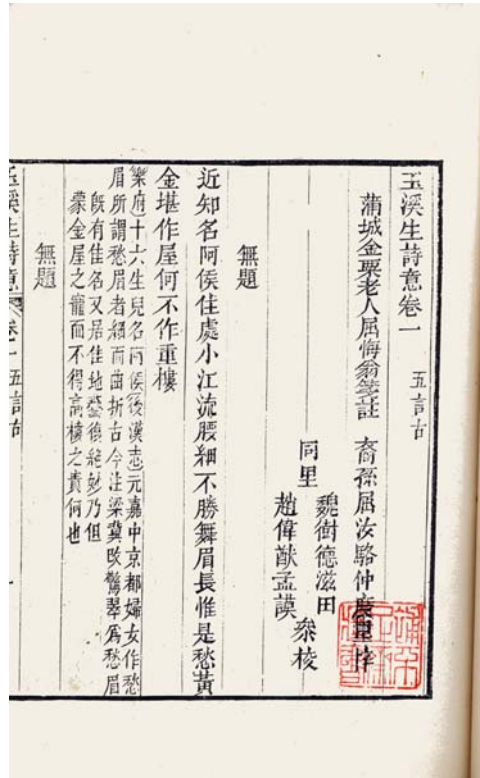 玉溪生詩意卷一 五言古
蒲城金粟老人屈悔翁箋註 裔孫屈汝駱仲
同里
魏樹德滋田
趙偉猷孟謨
參校
無題
近知名阿侯住處小江流腰細不勝舞眉長惟是愁黃
金堪作屋何不作重樓
樂府十六生兒名阿侯後漢志元嘉中京都婦女作愁
眉所謂愁眉者細而曲折古今注梁冀改驚翠為愁眉
既有佳名又居佳地藝復絕妙乃但
蒙金屋之寵而不得高樓之貴何也
無題
玉溪生詩意 卷一 五言古